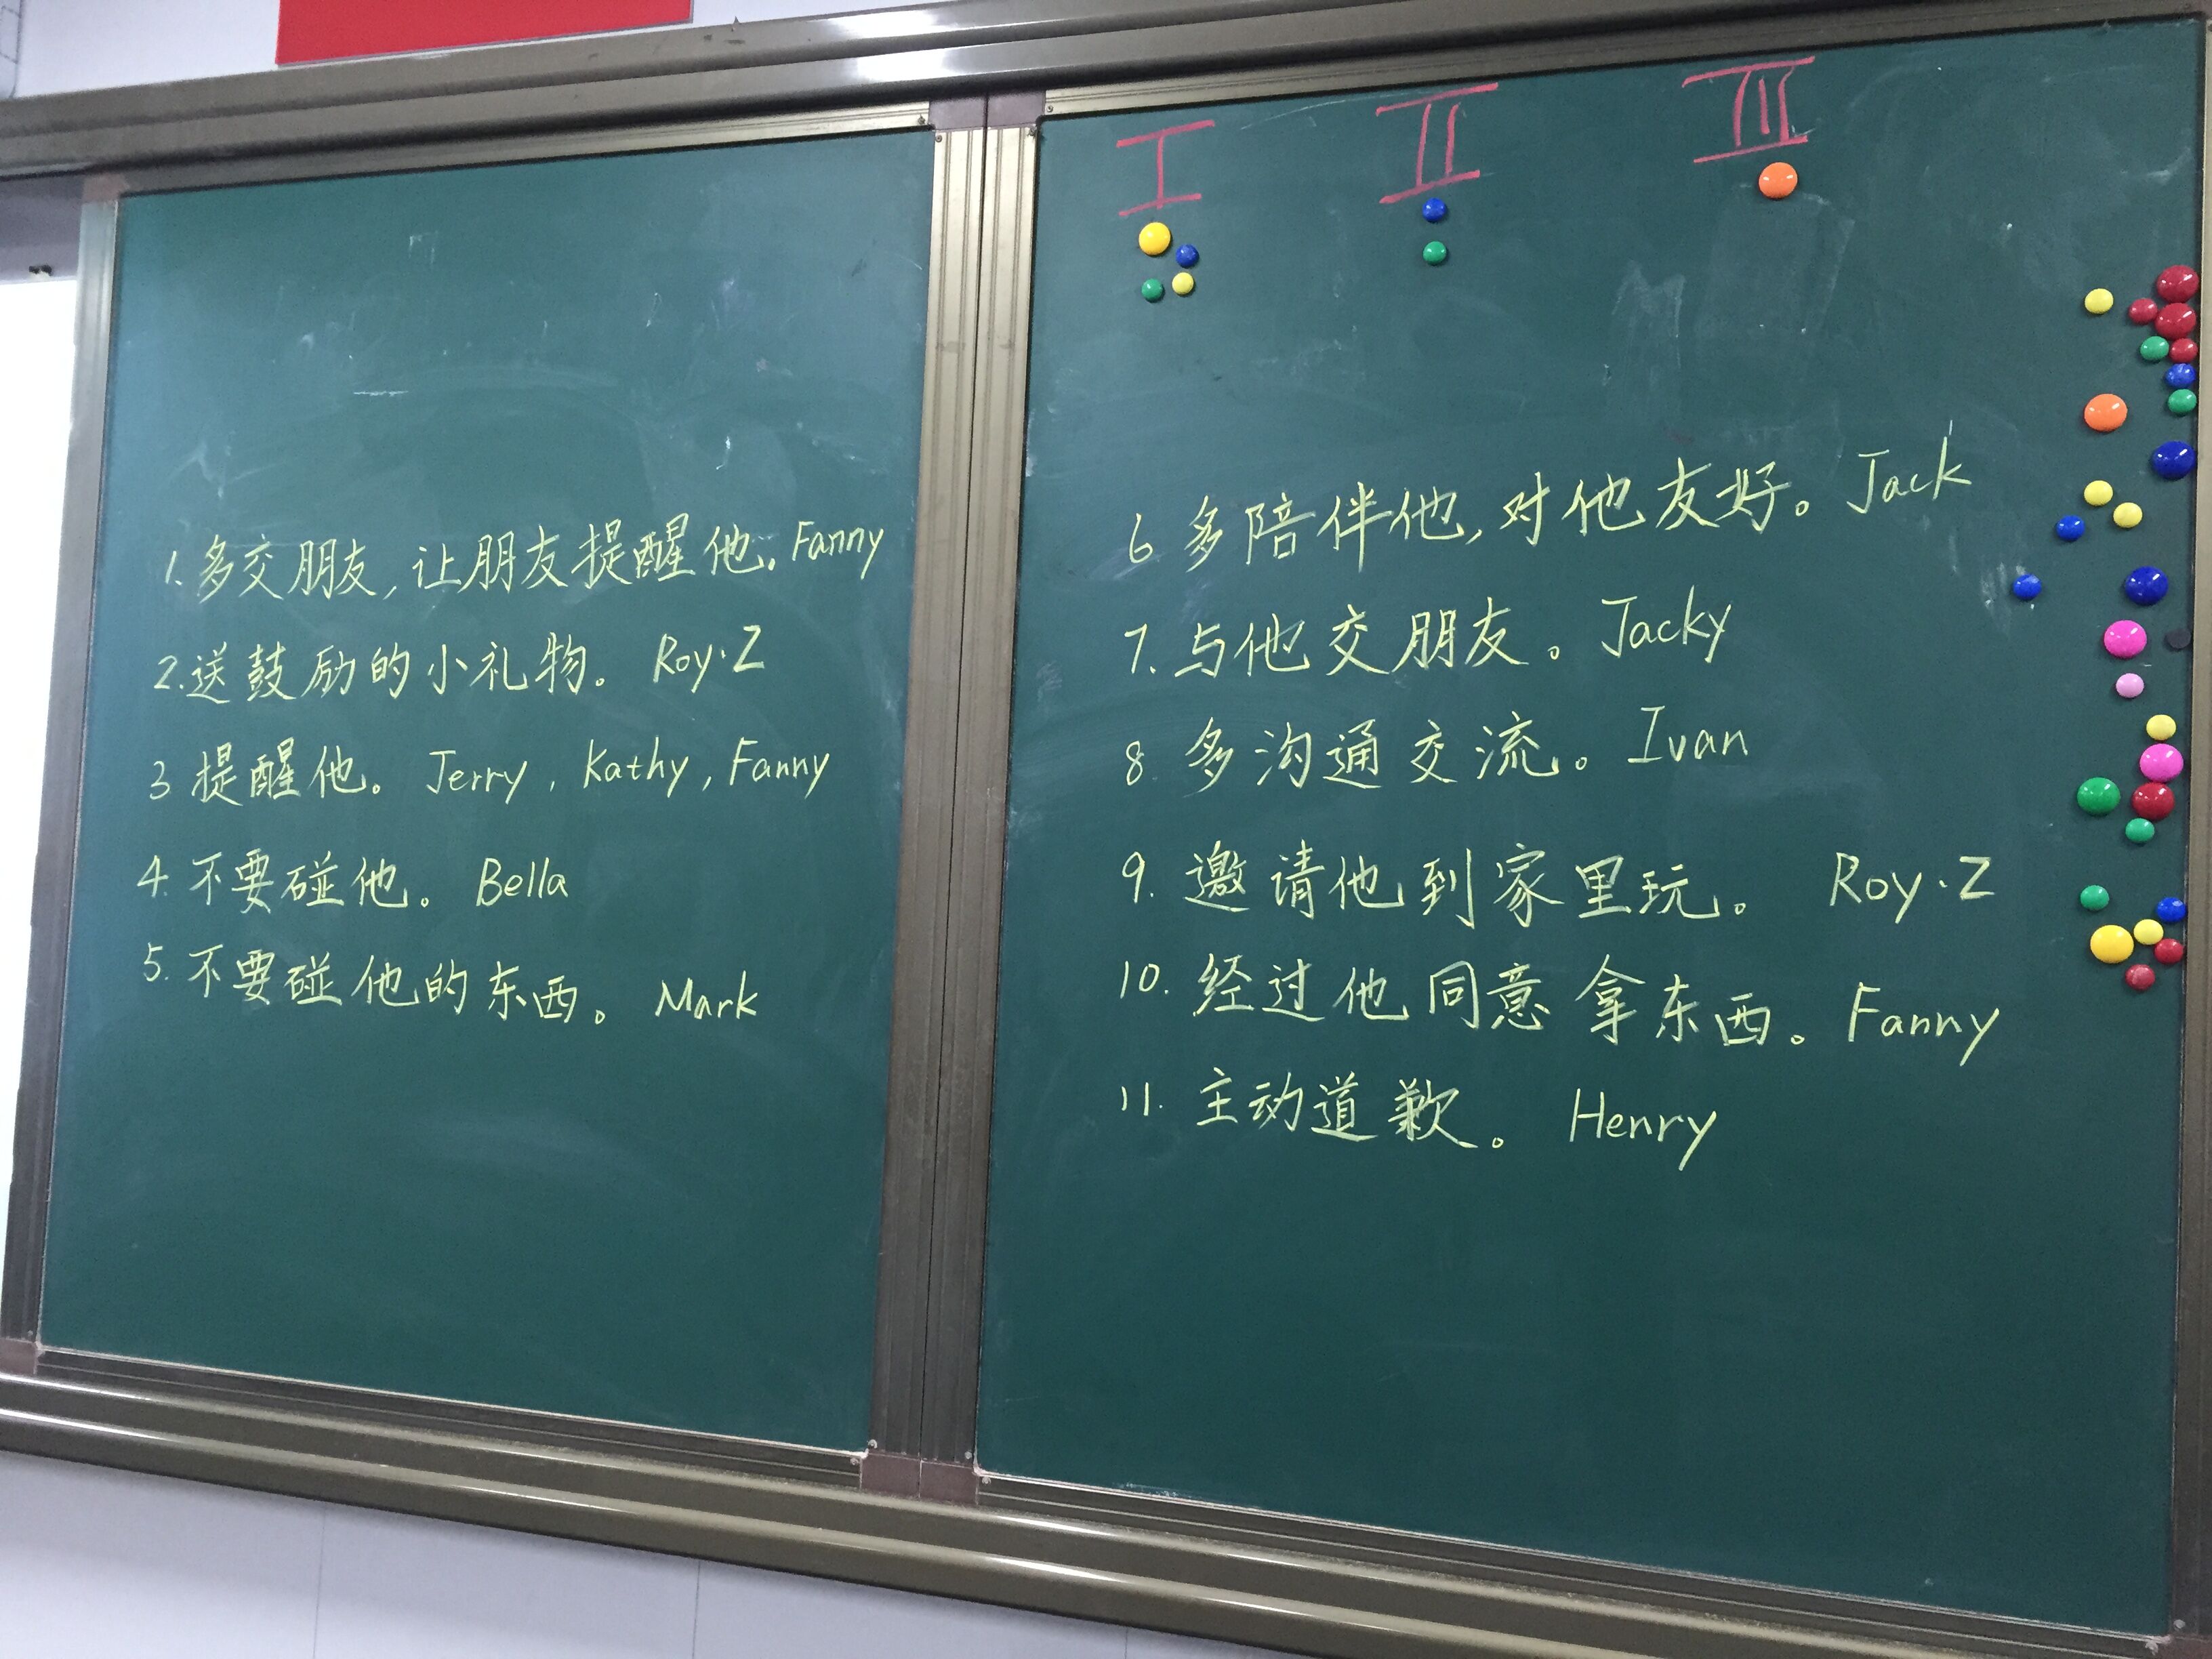 1. 多交朋友,让朋友提醒他。Fanny
2. 送鼓励的小礼物。 Roy·Z
3 提醒他。 Jerry, Kathy, Fanny
4. 不要碰他。 Bella
5. 不要碰他的东西。 Mark
I II III
6 多陪伴他,对他友好。Jack
7. 与他交朋友。Jacky
8 多沟通交流。Ivan
9. 邀请他到家里玩。 Roy·Z
10. 经过他同意拿东西。Fanny
11. 主动道歉。 Henry